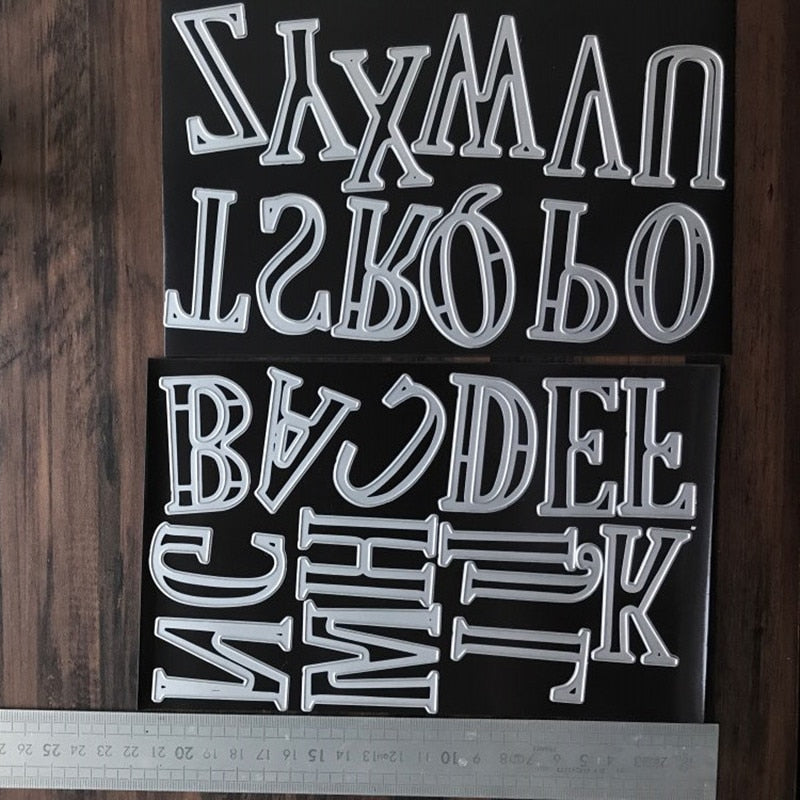 Z Y X W V U
T S R Q P O
B A C D E F
G H I J K
N M L
26 25 24 23 22 21 20 19 18 17 16 15 14 13 12 11 10 9 8 7 6 5 4 3